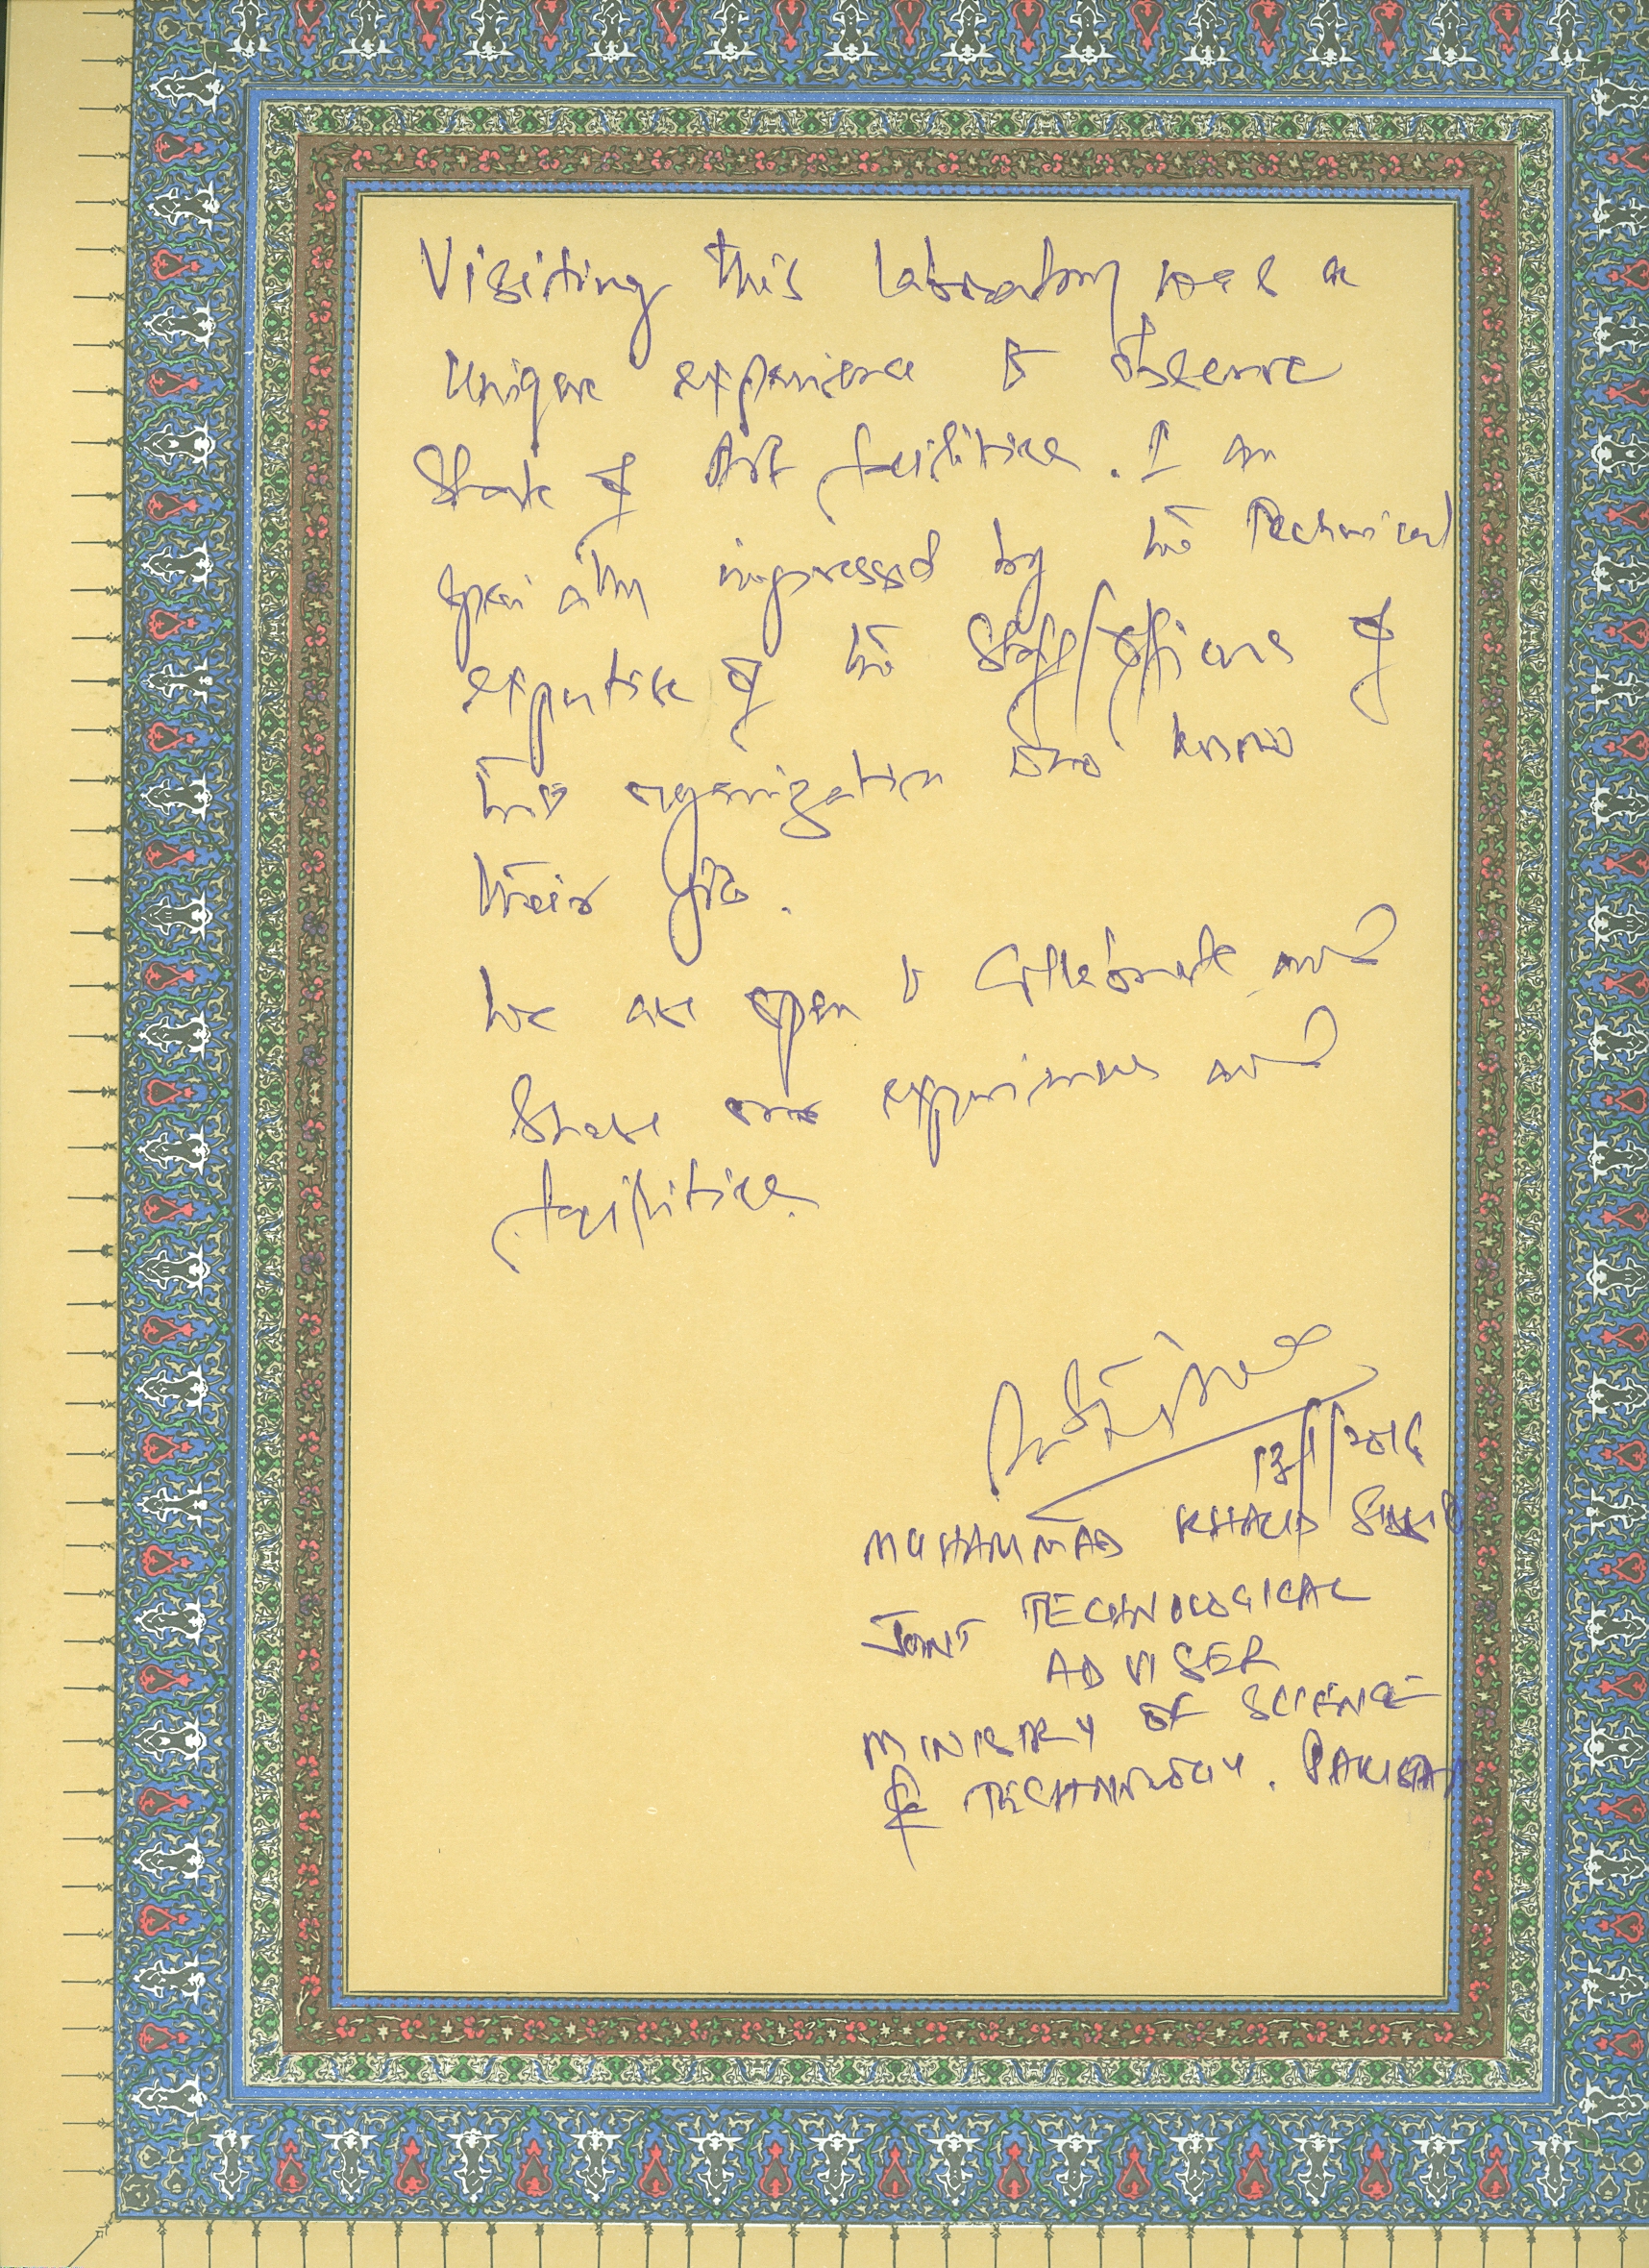 Visiting this laboratory was a
unique experience to observe
State of Art facilities. I am
specially impressed by the Technical
expertise of the Staff/officers of
this organization who know
their job.
We are open to Collaborate and
Share our experiences and
facilities.
13/1/2016
MUHAMMAD KHALID SIDDIQ
JOINT TECHNOLOGICAL
ADVISER
MINISTRY OF SCIENCE
& TECHNOLOGY. PAKISTAN